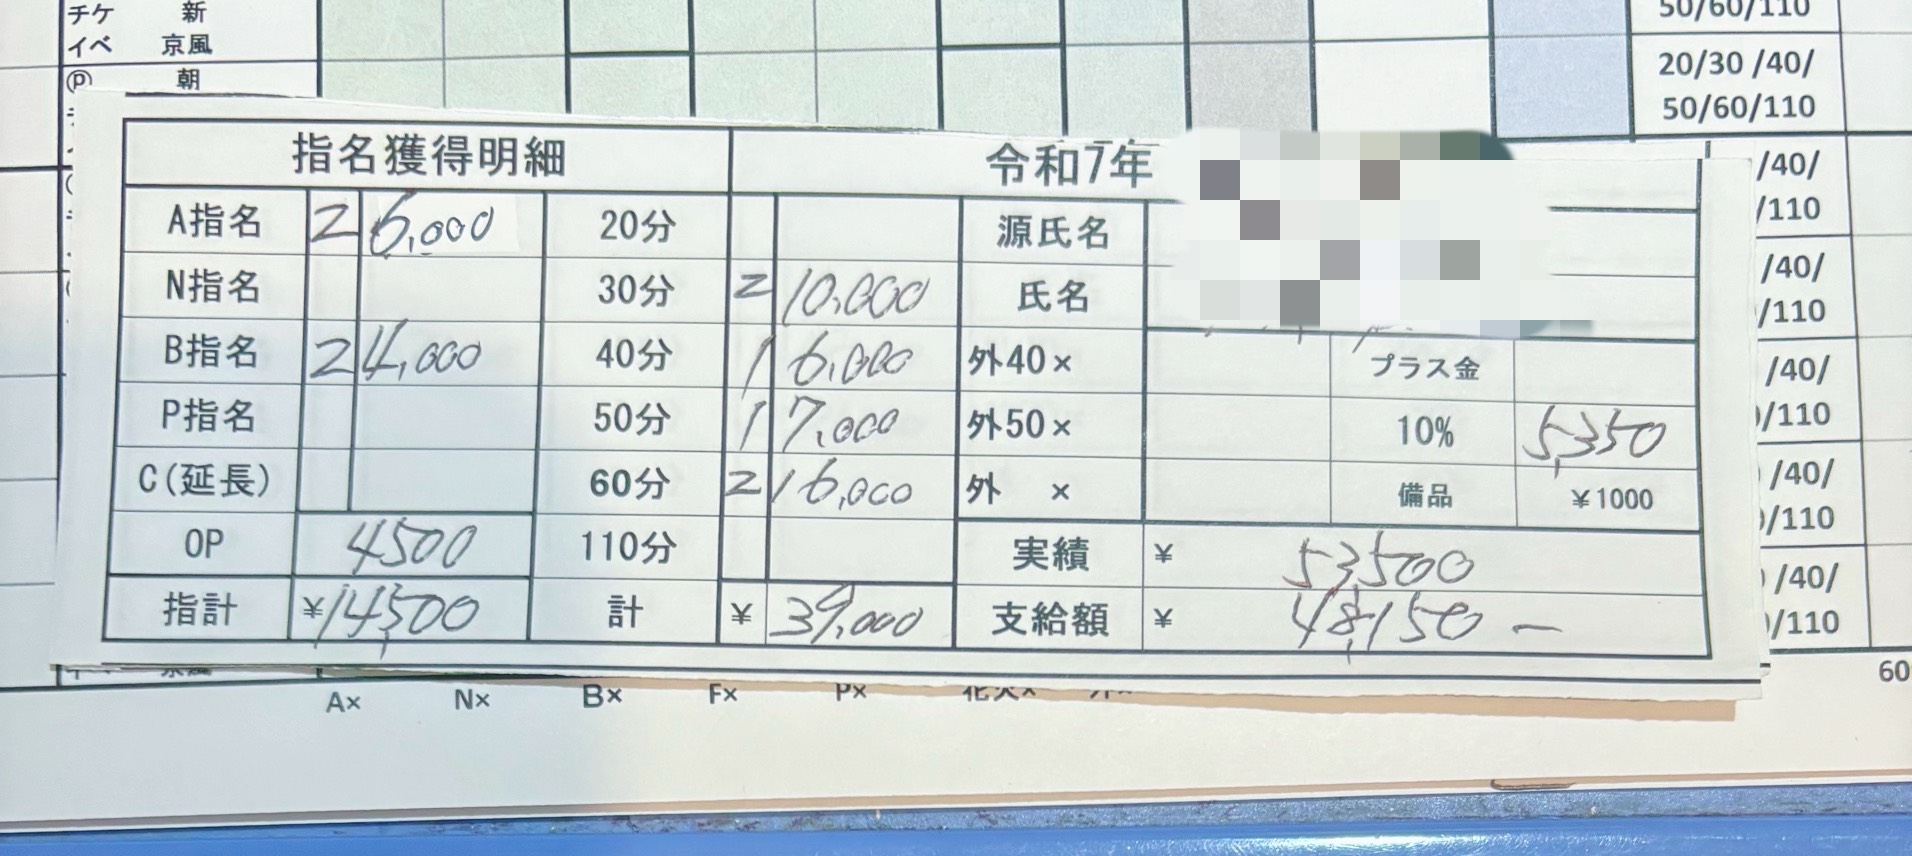 チケ 新 50/60/110
イベ 京風 20/30 /40/
Ⓟ 朝 50/60/110
指名獲得明細 令和7年 /40/
/110
A指名 2 6,000 20分 源氏名
N指名 30分 2 10,000 氏名 /40/
/110
B指名 2 4,000 40分 1 6,000 外40× プラス金 /40/
P指名 50分 1 7,000 外50× 10% 5,350 /110
C(延長) 60分 2 16,000 外 × 備品 ¥1000 /40/
/110
OP 4500 110分 実績 ¥ 53,500 /40/
指計 ¥14,500 計 ¥ 39,000 支給額 ¥ 48,150 – /110
A× N× B× F× P× 60